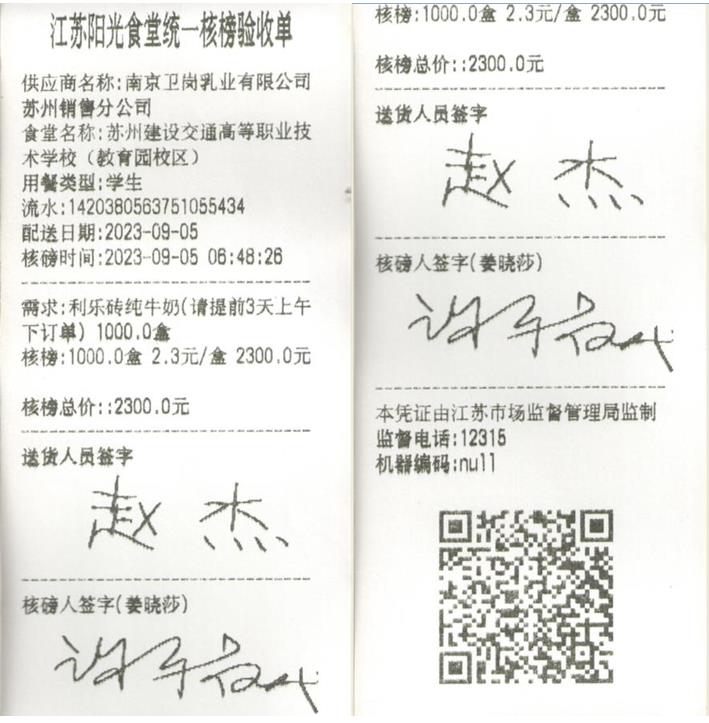 江苏阳光食堂统一核榜验收单
供应商名称:南京卫岗乳业有限公司
苏州销售分公司
食堂名称:苏州建设交通高等职业技
术学校（教育园校区）
用餐类型:学生
流水:1420380563751055434
配送日期:2023-09-05
核磅时间:2023-09-05 06:48:26
需求:利乐砖纯牛奶(请提前3天上午
下订单) 1000.0盒
核榜:1000.0盒 2.3元/盒 2300.0元
核榜总价::2300.0元
送货人员签字
赵杰
核磅人签字(姜晓莎)
核榜:1000.0盒 2.3元/盒 2300.0元
核榜总价::2300.0元
送货人员签字
赵杰
核磅人签字(姜晓莎)
本凭证由江苏市场监督管理局监制
监督电话:12315
机器编码:null